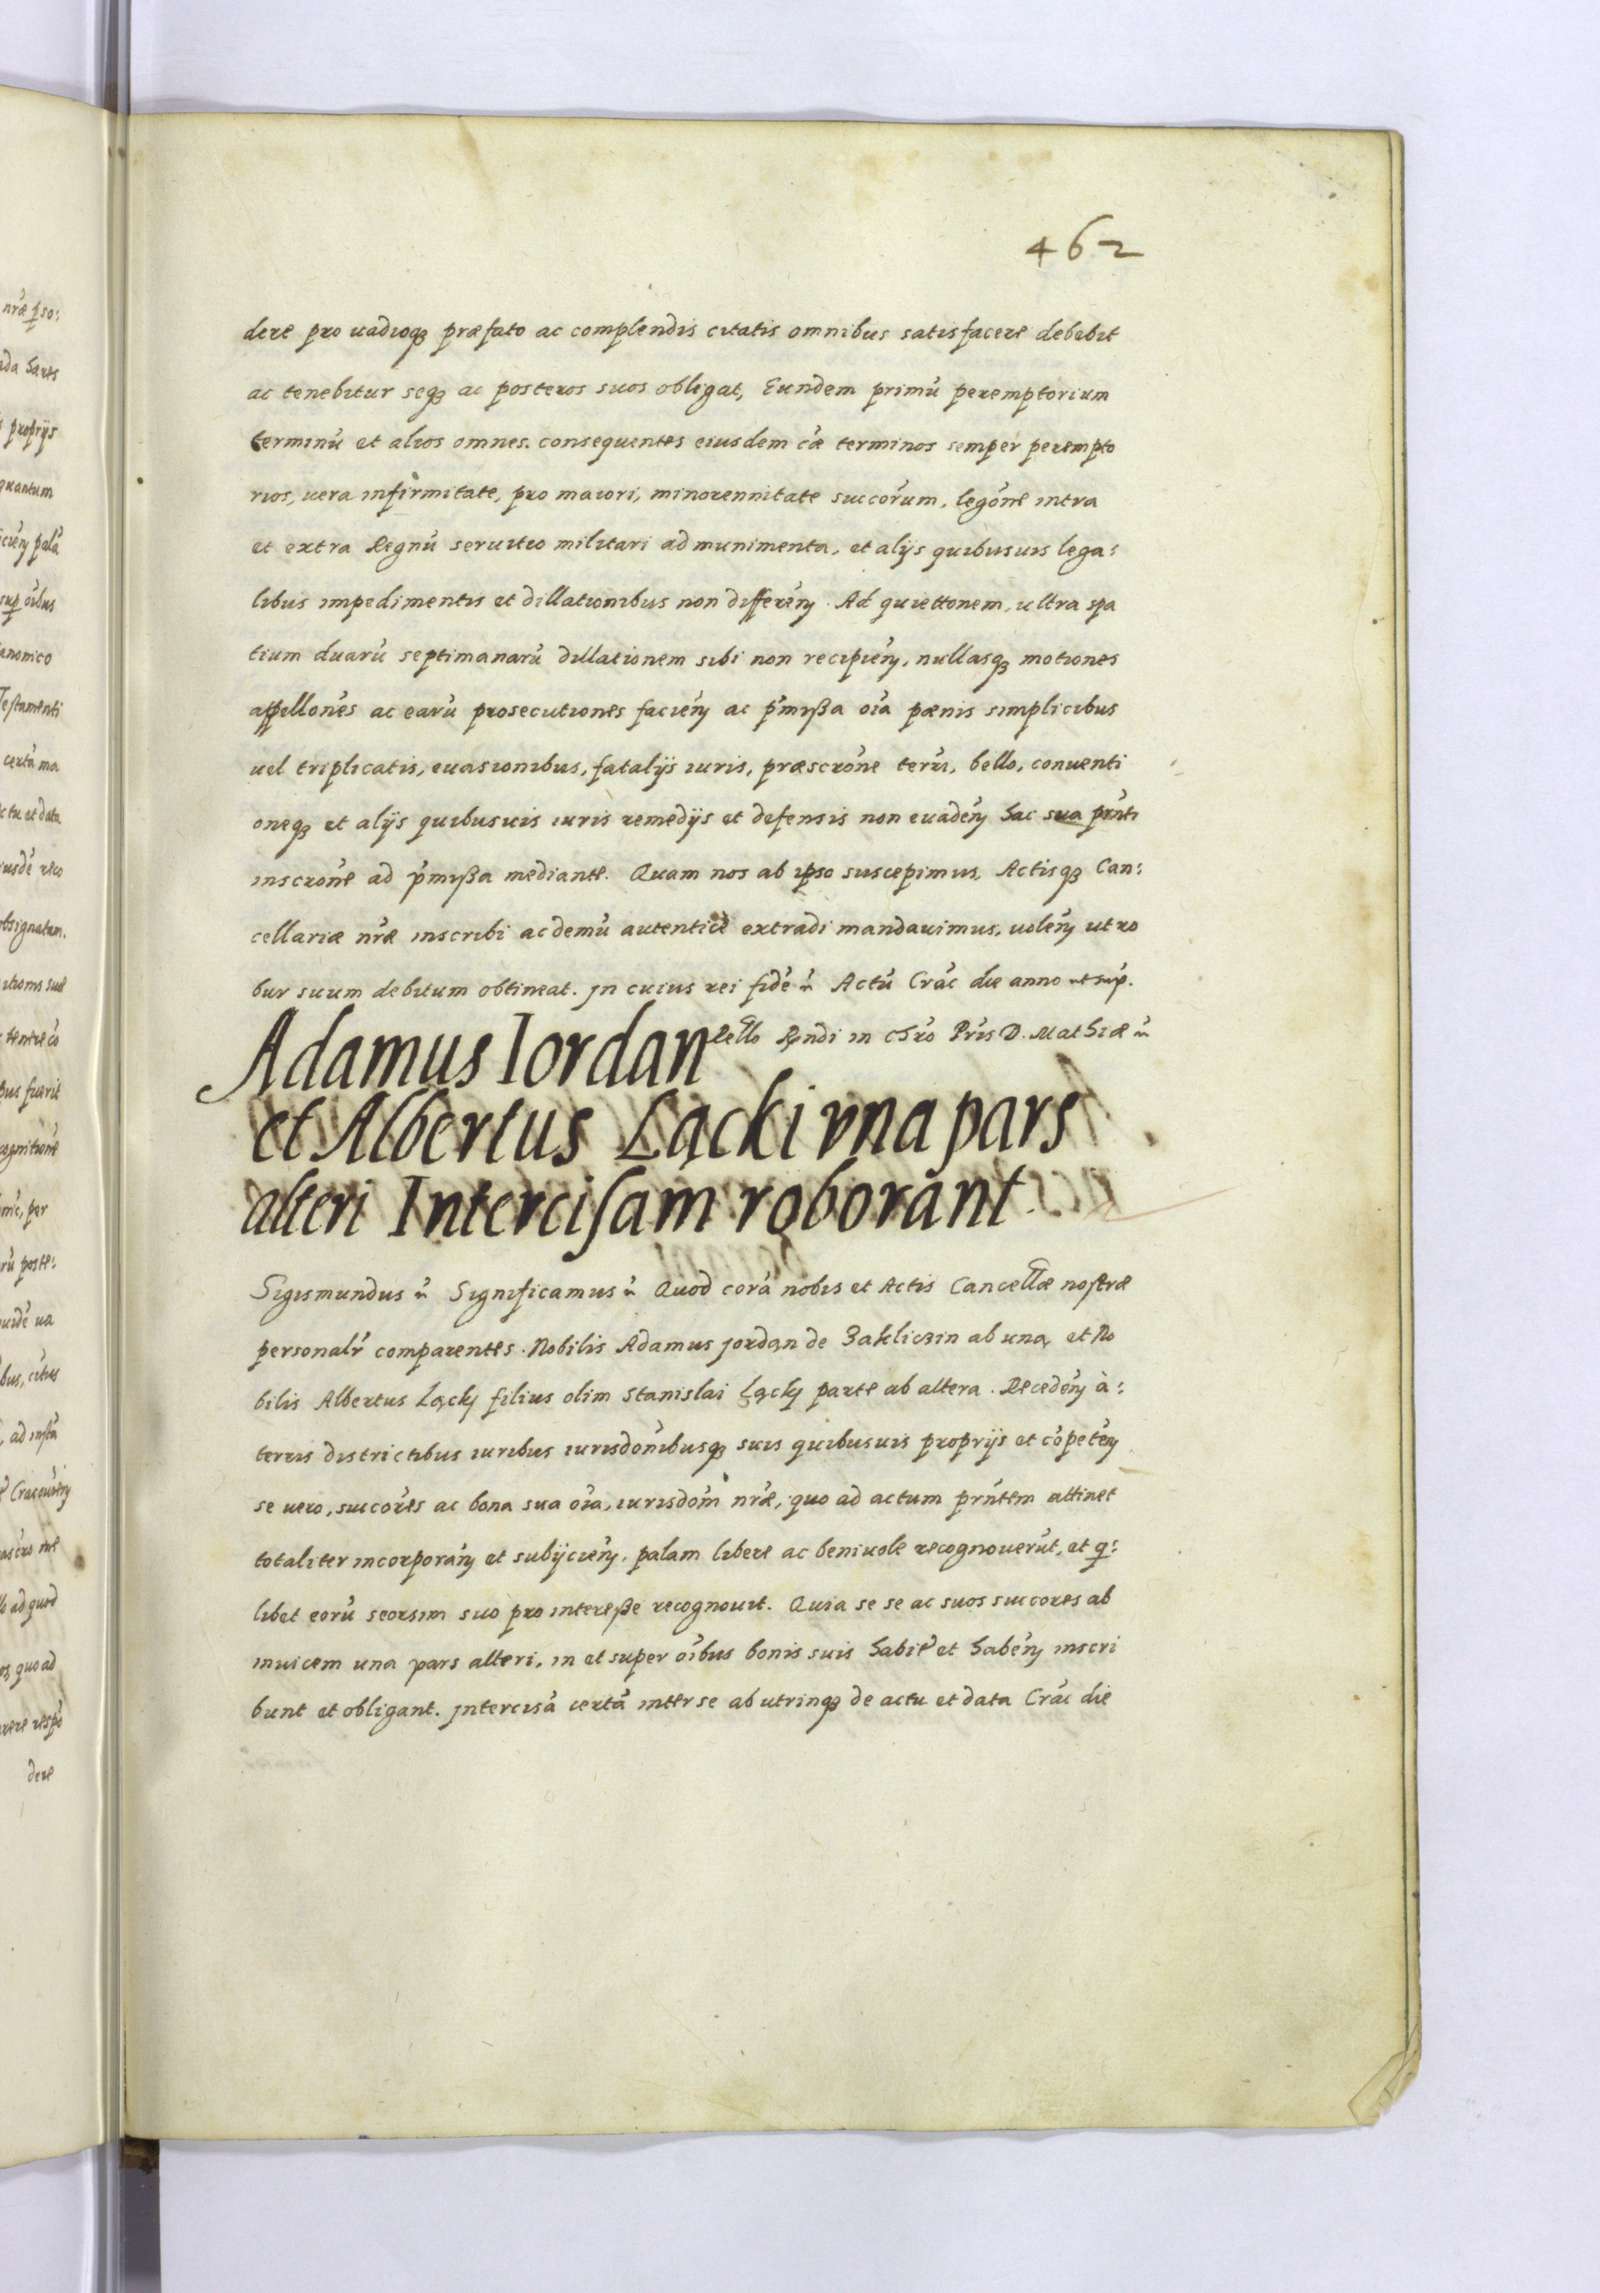 462
dere pro uadioq₃ præfato ac complendis citatis omnibus satisfacere debebit
ac tenebitur seq₃ ac posteros suos obligat, Eundem primũ peremptorium
terminũ et alios omnes consequentes eiusdem cæ terminos semper perempto
rios, uera infirmitate, pro maiori, minorennitate succorum, legõne intra
et extra Regnũ seruitio militari ad munimenta, et alijs quibusuis lega:
libus impedimentis et dillationibus non differeñ. Ad quiettonem, ultra spa
tium duarũ septimanarũ dillationem sibi non recipieñ, nullasq₃ motiones
appellones ac earũ prosecutiones facieñ ac pmyßa oia pænis simplicibus
uel triplicatis, euasionibus, fatalijs iuris, præscrone terri, bello, conuenti
oneq₃ et alijs quibusuis iuris remedijs et defensis non euadeñ hac sua prnti
inscrone ad pmyßa mediante. Quam nos ab ipso suscepimus, Actisq₃ Can:
cellariæ nræ inscribi ac demũ autentice extradi mandauimus, uoleñ ut ro
bur suum debitum obtineat. Jn cuius rei fidẽ Actũ Crac die anno ut sup.
Rello Rndi in Chro Pris D. Mathiæ
Adamus Iordan
et Albertus Lącki vna pars
alteri Intercisam roborant
Sigismundus Significamus Quod corã nobis et Actis Cancellæ nostræ
personalr comparentes. Nobilis Adamus Jordan de Zakliczin ab una, et No
bilis Albertus Lącky filius olim Stanislai Lącky parte ab altera. Recedeñ à:
terris districtibus iuribus iurisdonibusq₃ suis quibusuis proprijs et cõpeteñ
se uero, succores ac bona sua oia, iurisdom nræ, quo ad actum prntem attinet
totaliter incorporañ et subijcieñ, palam libere ac beniuole recognouerũt, et q:
libet eorũ seorsim suo pro intereße recognouit. Quia se se ac suos succores ab
inuicem una pars alteri, in et super oibus bonis suis habit et habeñ inscri
bunt et obligant. Jntercisã certã inter se ab utrinq₃ de actu et data Crac die